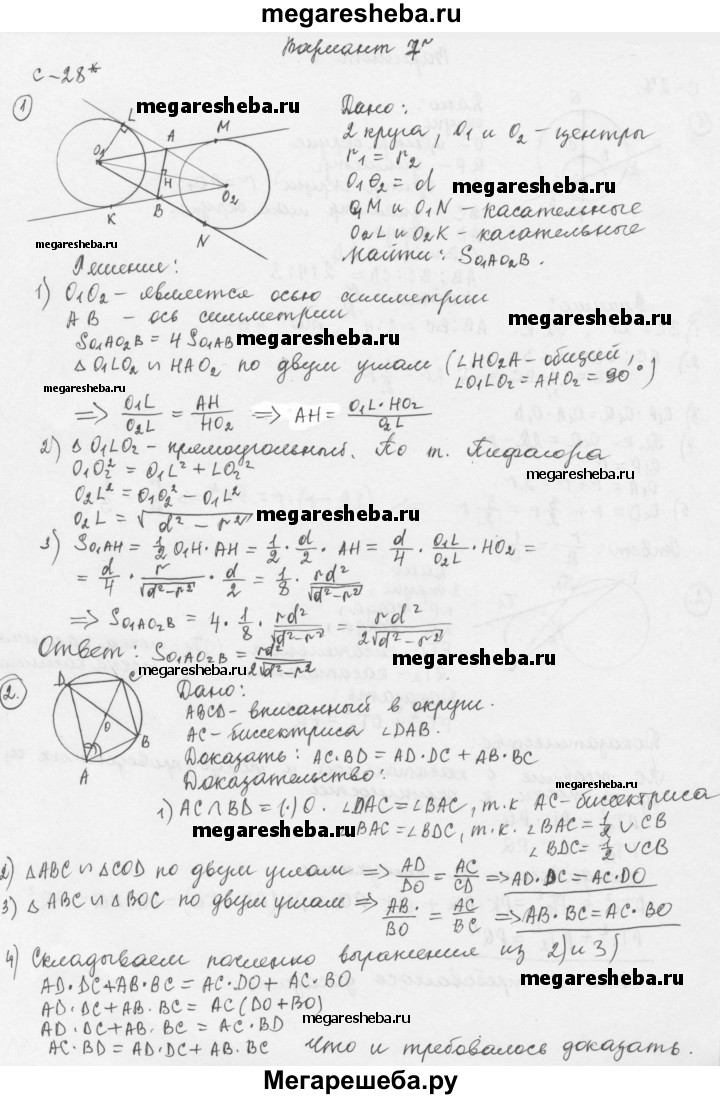 megaresheba.ru
Вариант 7
С-28*
1
L
megaresheba.ru
A
M
O1
H
O2
K
B
N
megaresheba.ru
Дано:
2 круга, O1 и O2 – центры
r1 = r2
O1O2 = d
megaresheba.ru
O1M и O1N – касательные
O2L и O2K – касательные
Найти: SO1AO2B.
Решение:
1) O1O2 – является осью симметрии
AB – ось симметрии
megaresheba.ru
SO1AO2B = 4 SO1AB
megaresheba.ru
Δ O1LO2 ∽ HAO2 по двум углам (∠HO2A – общий,
∠O1LO2 = AHO2 = 90°)
=> O1L/O2L = AH/HO2 => AH = O1L·HO2/O2L
2) Δ O1LO2 – прямоугольный. По т. Пифагора
megaresheba.ru
O1O2² = O1L² + LO2²
O2L² = O1O2² – O1L²
O2L = √(d² – r²)
megaresheba.ru
3) SO1AH = 1/2 O1H · AH = 1/2 · d/2 · AH = d/4 · O1L/O2L · HO2 =
= d/4 · r/√(d²–r²) · d/2 = 1/8 · rd²/√(d²–r²)
=> SO1AO2B = 4 · 1/8 · rd²/√(d²–r²) = rd²/2√(d²–r²)
Ответ: SO1AO2B = rd²/2√(d²–r²)
megaresheba.ru
2.
D
C
O
B
A
Дано:
ABCD – вписанный в окруж.
AC – биссектриса ∠DAB.
Доказать: AC·BD = AD·DC + AB·BC
Доказательство:
1) AC∩BD = (·) O. ∠DAC = ∠BAC, т.к AC – биссектриса
megaresheba.ru
BAC = ∠BDC, т.к. ∠BAC = 1/2 ∪CB
∠BDC = 1/2 ∪CB
2) ΔABC ∽ ΔCOD по двум углам => AD/DO = AC/CD => AD·DC = AC·DO
3) Δ ABC ∽ ΔBOC по двум углам => AB·/BO = AC/BC => AB·BC = AC·BO
megaresheba.ru
4) Складываем почленно выражения из 2) и 3)
megaresheba.ru
AD·DC+AB·BC = AC·DO+ AC·BO
AD·DC+AB·BC = AC(DO+BO)
AD·DC+AB·BC = AC·BD
megaresheba.ru
AC·BD = AD·DC+AB·BC Что и требовалось доказать.
megaresheba.ru
Мегарешеба.ру